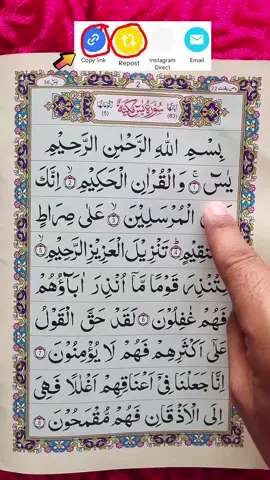 Copy link Repost Instagram Direct Email
2
سُوْرَةُ يٰسٓ مَكِّيَّةٌ
(5) (83)
بِسْمِ اللّٰهِ الرَّحْمٰنِ الرَّحِيْمِ
يٰسٓ ۝١ وَالْقُرْاٰنِ الْحَكِيْمِ ۝٢ اِنَّكَ
الْمُرْسَلِيْنَ ۝٣ عَلٰى صِرَاطٍ
تَنْزِيْلَ الْعَزِيْزِ الرَّحِيْمِ ۝٥
لِتُنْذِرَ قَوْمًا مَّآ اُنْذِرَ اٰبَآؤُهُمْ
فَهُمْ غٰفِلُوْنَ ۝٦ لَقَدْ حَقَّ الْقَوْلُ
عَلٰٓى اَكْثَرِهِمْ فَهُمْ لَا يُؤْمِنُوْنَ ۝٧
اِنَّا جَعَلْنَا فِيْٓ اَعْنَاقِهِمْ اَغْلٰلًا فَهِيَ
اِلَى الْاَذْقَانِ فَهُمْ مُّقْمَحُوْنَ ۝٨